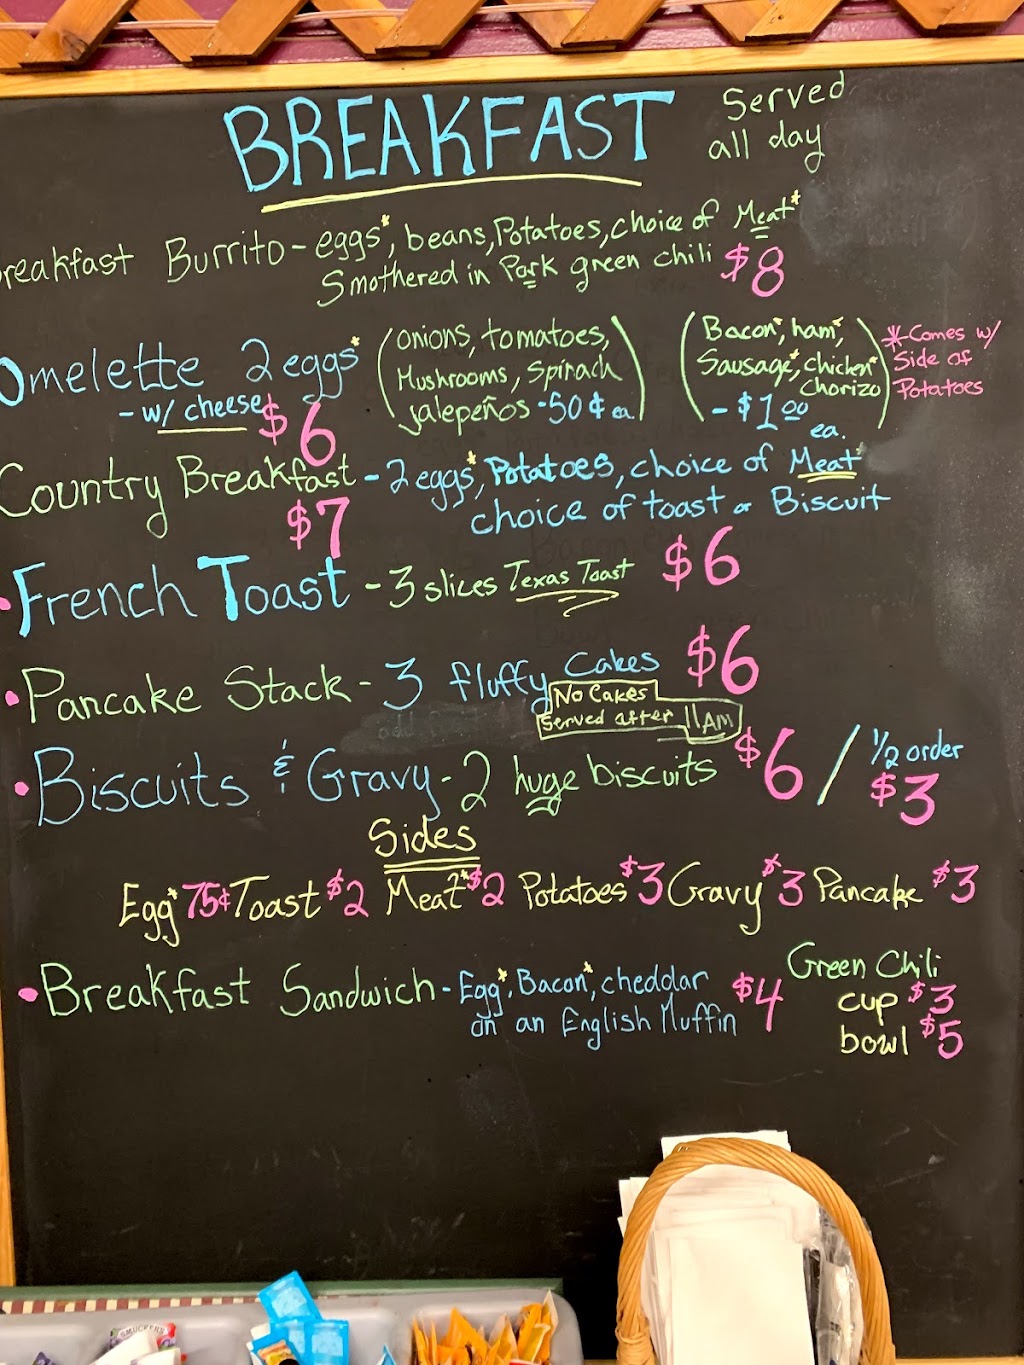 BREAKFAST Served all day
reakfast Burrito - eggs*, beans, Potatoes, choice of Meat*
Smothered in Pork green chili $8
Omelette 2 eggs*
- w/ cheese $6
(onions, tomatoes,
Mushrooms, Spinach
jalepeños - 50¢ ea.)
(Bacon*, ham*,
Sausage*, chicken*
Chorizo)
- $1.00 ea.
*Comes w/
Side of
Potatoes
Country Breakfast - 2 eggs*, Potatoes, choice of Meat*
$7 choice of toast or Biscuit
• French Toast - 3 slices Texas Toast $6
• Pancake Stack - 3 fluffy Cakes $6
No Cakes
Served after 11AM
• Biscuits & Gravy - 2 huge biscuits $6 / 1/2 order $3
Sides
Egg* 75¢ Toast $2 Meat* $2 Potatoes $3 Gravy $3 Pancake $3
• Breakfast Sandwich - Egg*, Bacon*, cheddar
on an English Muffin $4
Green Chili
cup $3
bowl $5
SMUCKER'S